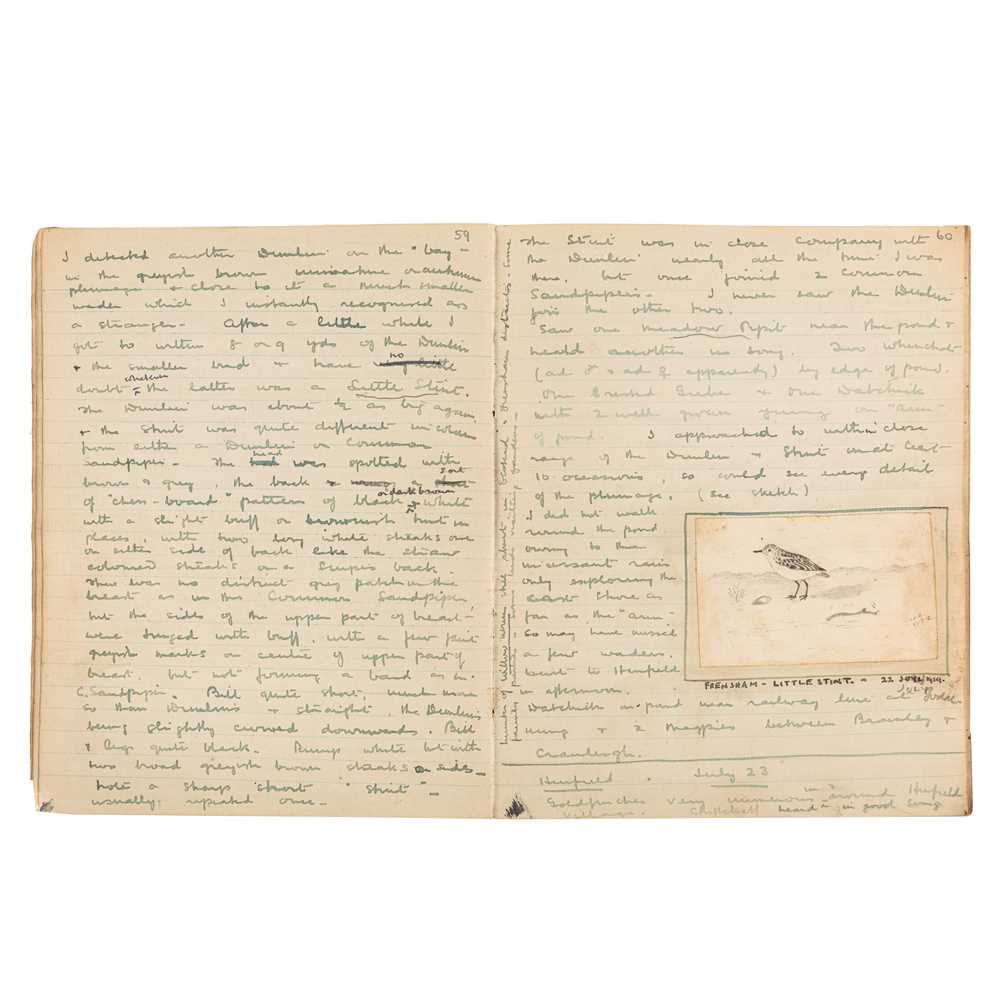 59
I detected another Dunlin on the "bay"
in the greyish brown immature or autumn
plumage & close to it a much smaller
wader which I instantly recognised as
a stranger - After a little while I
got to within 8 or 9 yds of the Dunlin
& the smaller bird & have no
doubt whether the latter was a Little Stint.
The Dunlin was about ½ as big again
& the Stint was quite different in colour
from either a Dunlin or Common
Sandpiper - The head was spotted with
brown & grey, the back a sort
of "chess-board" pattern of black or dark brown & white
with a slight buff or brownish tint in
places, with two long white streaks one
on either side of back like the straw
coloured streaks on a Snipes back.
There was no distinct grey patch on the
breast as in the Common Sandpiper,
but the sides of the upper part of breast
were tinged with buff, with a few faint
greyish marks on centre of upper part of
breast, but not forming a band as in
C. Sandpiper. Bill quite short, much more
so than Dunlins & straight, the Dunlins
being slightly curved downwards. Bill
& legs quite black. Rump white but with
two broad greyish brown streaks on sides -
note a sharp "stort" "strit" -
usually repeated once -
60
The Stint was in close company with
the Dunlin nearly all the time I was
there, but once joined 2 Common
Sandpipers - I never saw the Dunlin
join the other two.
Saw one Meadow Pipit near the pond &
heard another in song. Two whinchat
(ad ♂ & ad ♀ apparently) by edge of pond.
One Crested Grebe & one Dabchick
with 2 well grown young on arm
of pond. I approached to within close
range of the Dunlin & Stint on at least
10 occasions, so could see every detail
of the plumage. (see sketch)
I did not walk
round the pond
owing to the
incessant rain
only exploring the
east shore as
far as the "arm"
so may have missed
a few waders.
Went to Henfield
in afternoon.
Dabchick on pond near railway line at
& 2 Magpies between Bramley &
Cranleigh.
FRENSHAM - LITTLE STINT. - 22 JULY 1919.
Henfield. July 23
Goldfinches very numerous in & around Henfield
Village. Chiffchaff heard in good song